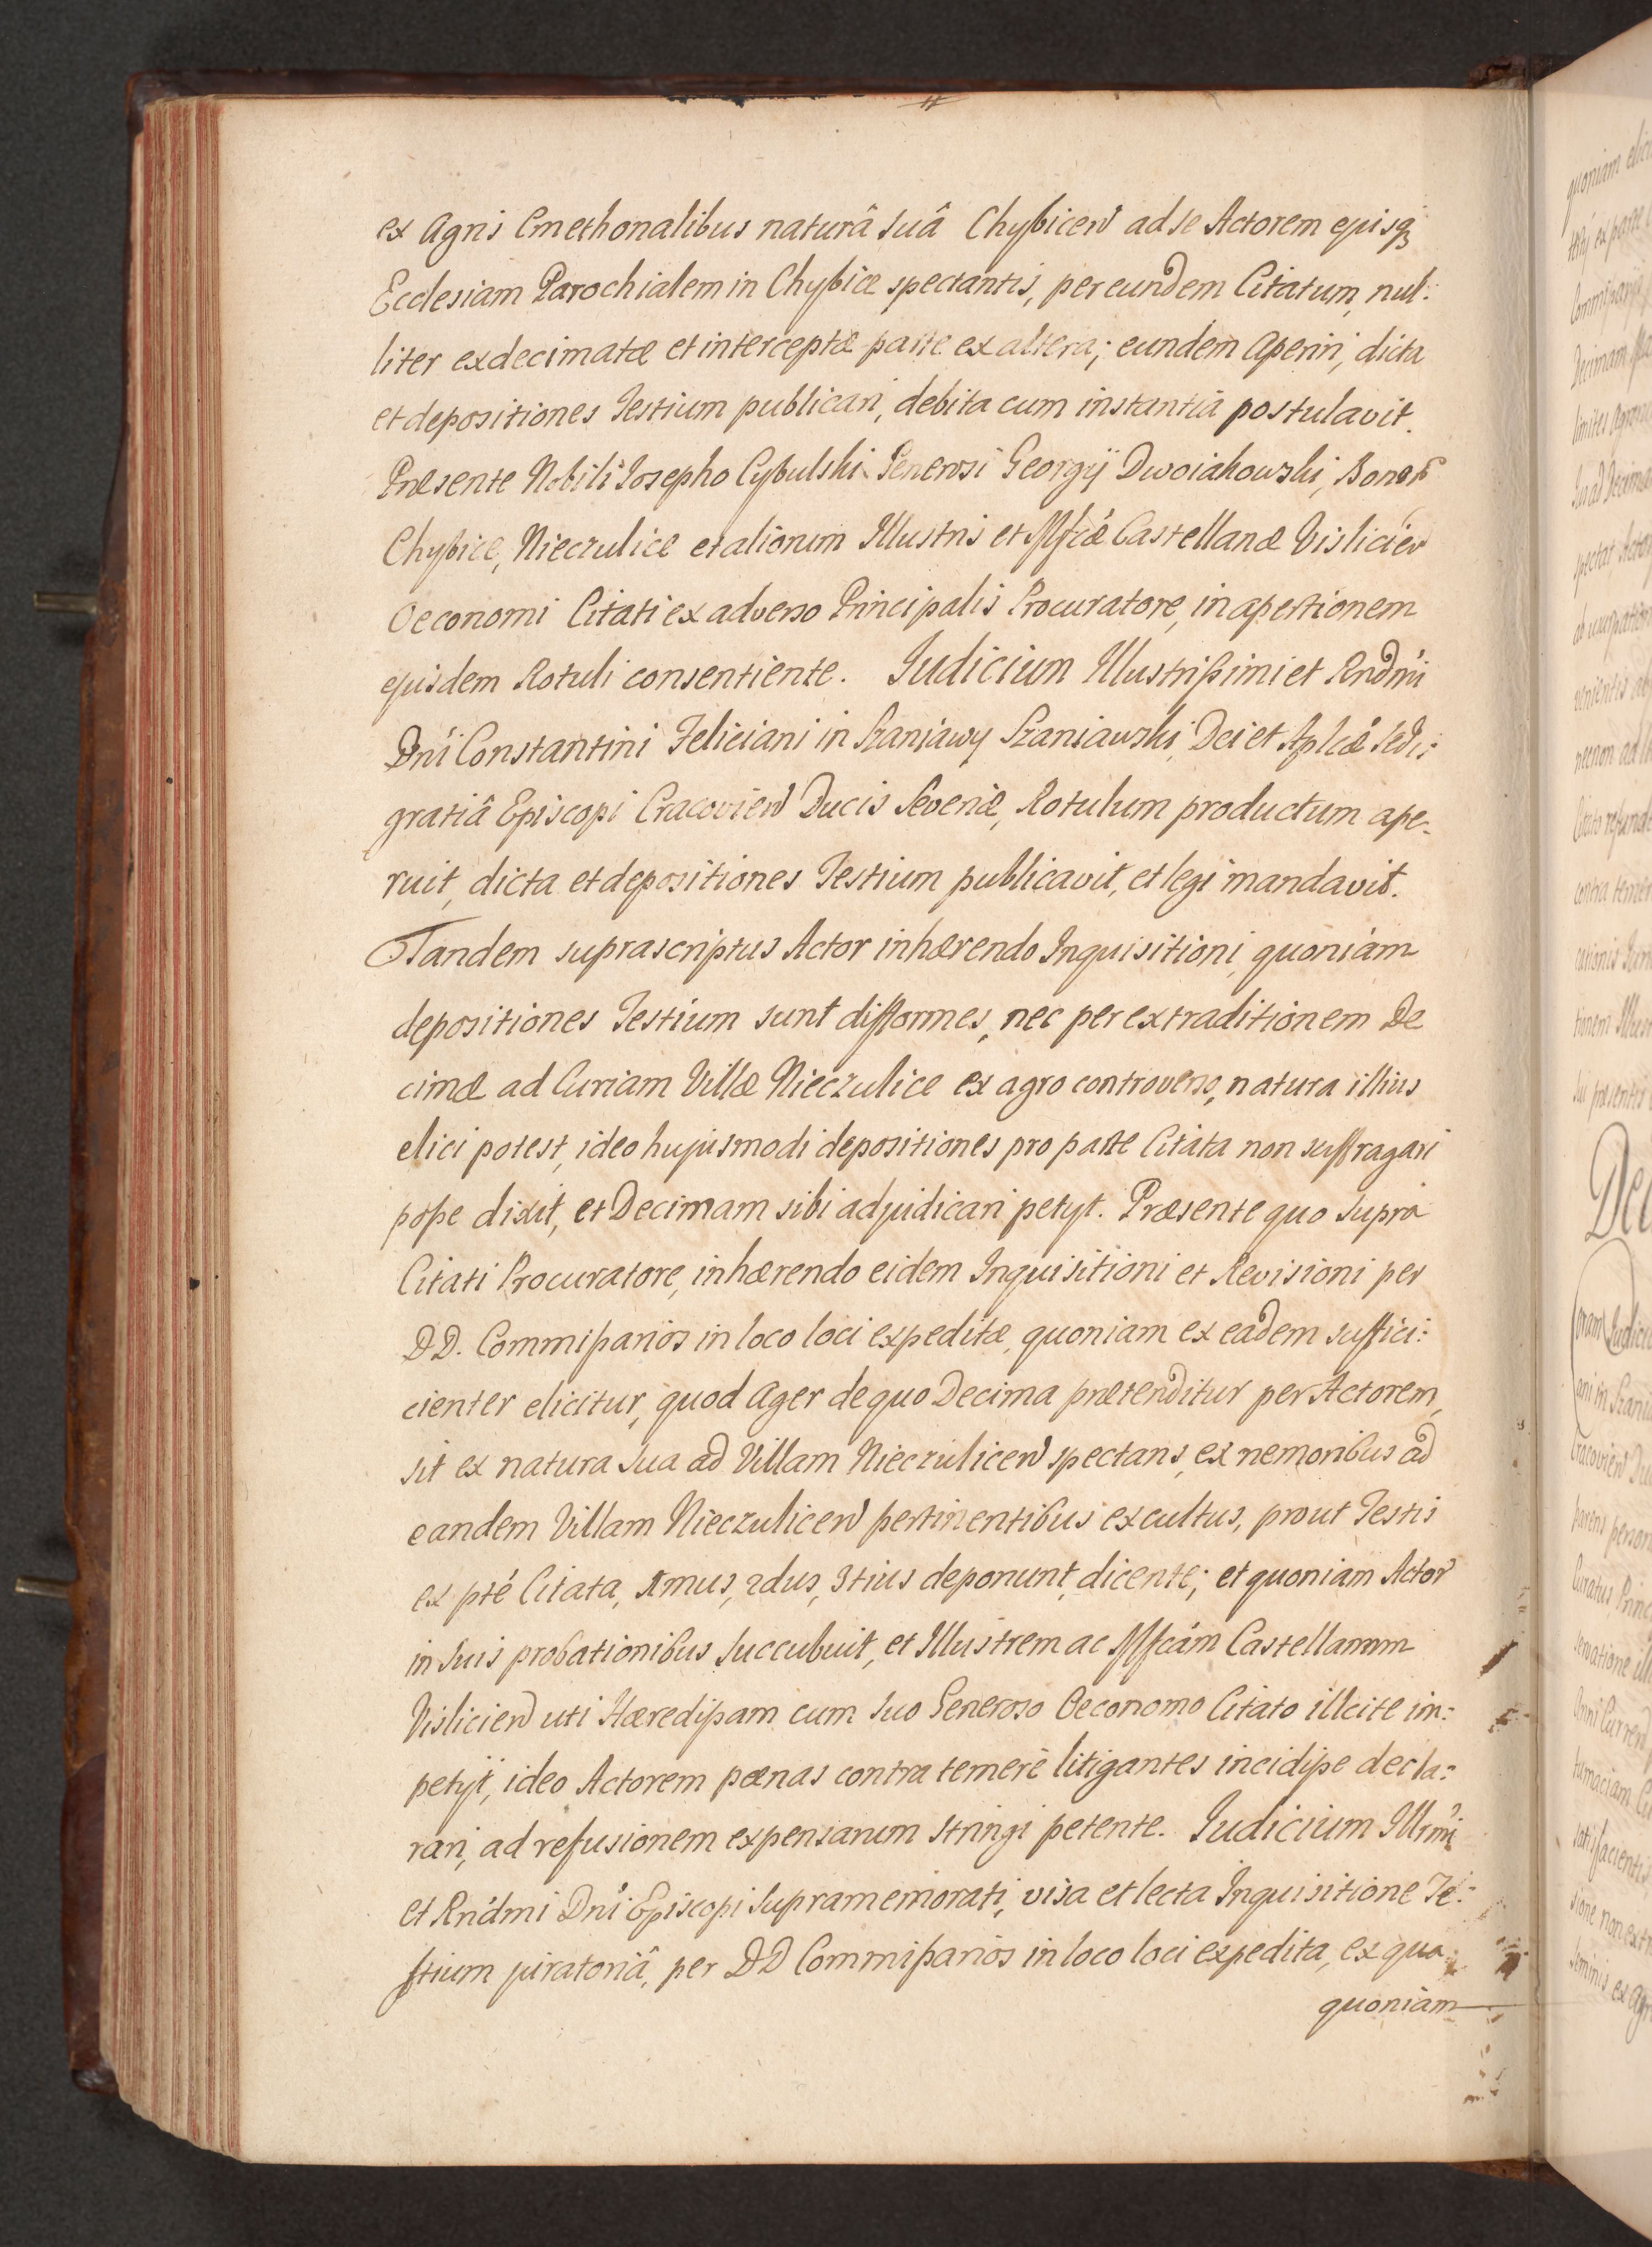 ex Agris Cmethonalibus naturâ suâ Chybicen ad se Actorem ejusq
Ecclesiam Parochialem in Chybice spectantis, per eundem Citatum, nul:
liter exdecimatæ et interceptæ parte ex altera; eundem Aperiri, dicta
et depositiones Testium publicari, debita cum instantiâ postulavit.
Præsente Nobili Josepho Cybulski Generosi Georgÿ Dwoiakowski, Bonor
Chybice, Nieczulice et aliorum Illustris et Mfcæ Castellanæ Vislicien
Oeconomi Citati ex adverso Principalis Procuratore, in apertionem
ejusdem Rotuli consentiente. Judicium Illustrißimi et Rndmi
Dni Constantini Feliciani in Szaniawy Szaniawski, Dei et Aplcæ Sedis
gratiâ Episcopi Cracovien Ducis Severiæ, Rotulum productum ape:
ruit, dicta et depositiones Testium publicavit, et legi mandavit.
Tandem suprascriptus Actor inhærendo Inquisitioni, quoniam
depositiones Testium sunt difformes, nec per extraditionem De
cimæ ad Curiam Villæ Nieczulice ex agro controverso, natura illius
elici potest, ideo hujusmodi depositiones pro parte Citata non suffragari
poße dixit, et Decimam sibi adjudicari petyt. Præsente quo supra
Citati Procuratore, inhærendo eidem Inquisitioni et Revisioni per
DD. Commißarios in loco loci expeditæ, quoniam ex eadem suffici:
cienter elicitur, quod Ager de quo Decima prætenditur per Actorem,
sit ex natura sua ad Villam Nieczulicen spectans, ex nemoribus ad
eandem Villam Nieczulicen pertinentibus excultus, prout Testis
ex pte Citata, 1mus, 2dus, 3tius deponunt, dicente; et quoniam Actor
in suis probationibus succubuit, et Illustrem ac Mfcam Castellanam
Vislicien uti Hæredißam cum suo Generoso Oeconomo Citato illcite im:
petyt, ideo Actorem pœnas contra temerè litigantes incidiße decla:
rari, ad refusionem expensarum stringi petente. Judicium Illrmi
et Rndmi Dni Episcopi supramemorati, visa et lecta Inquisitione Te:
stium juratoriâ, per DD Commißarios in loco loci expedita, ex qua
quoniam